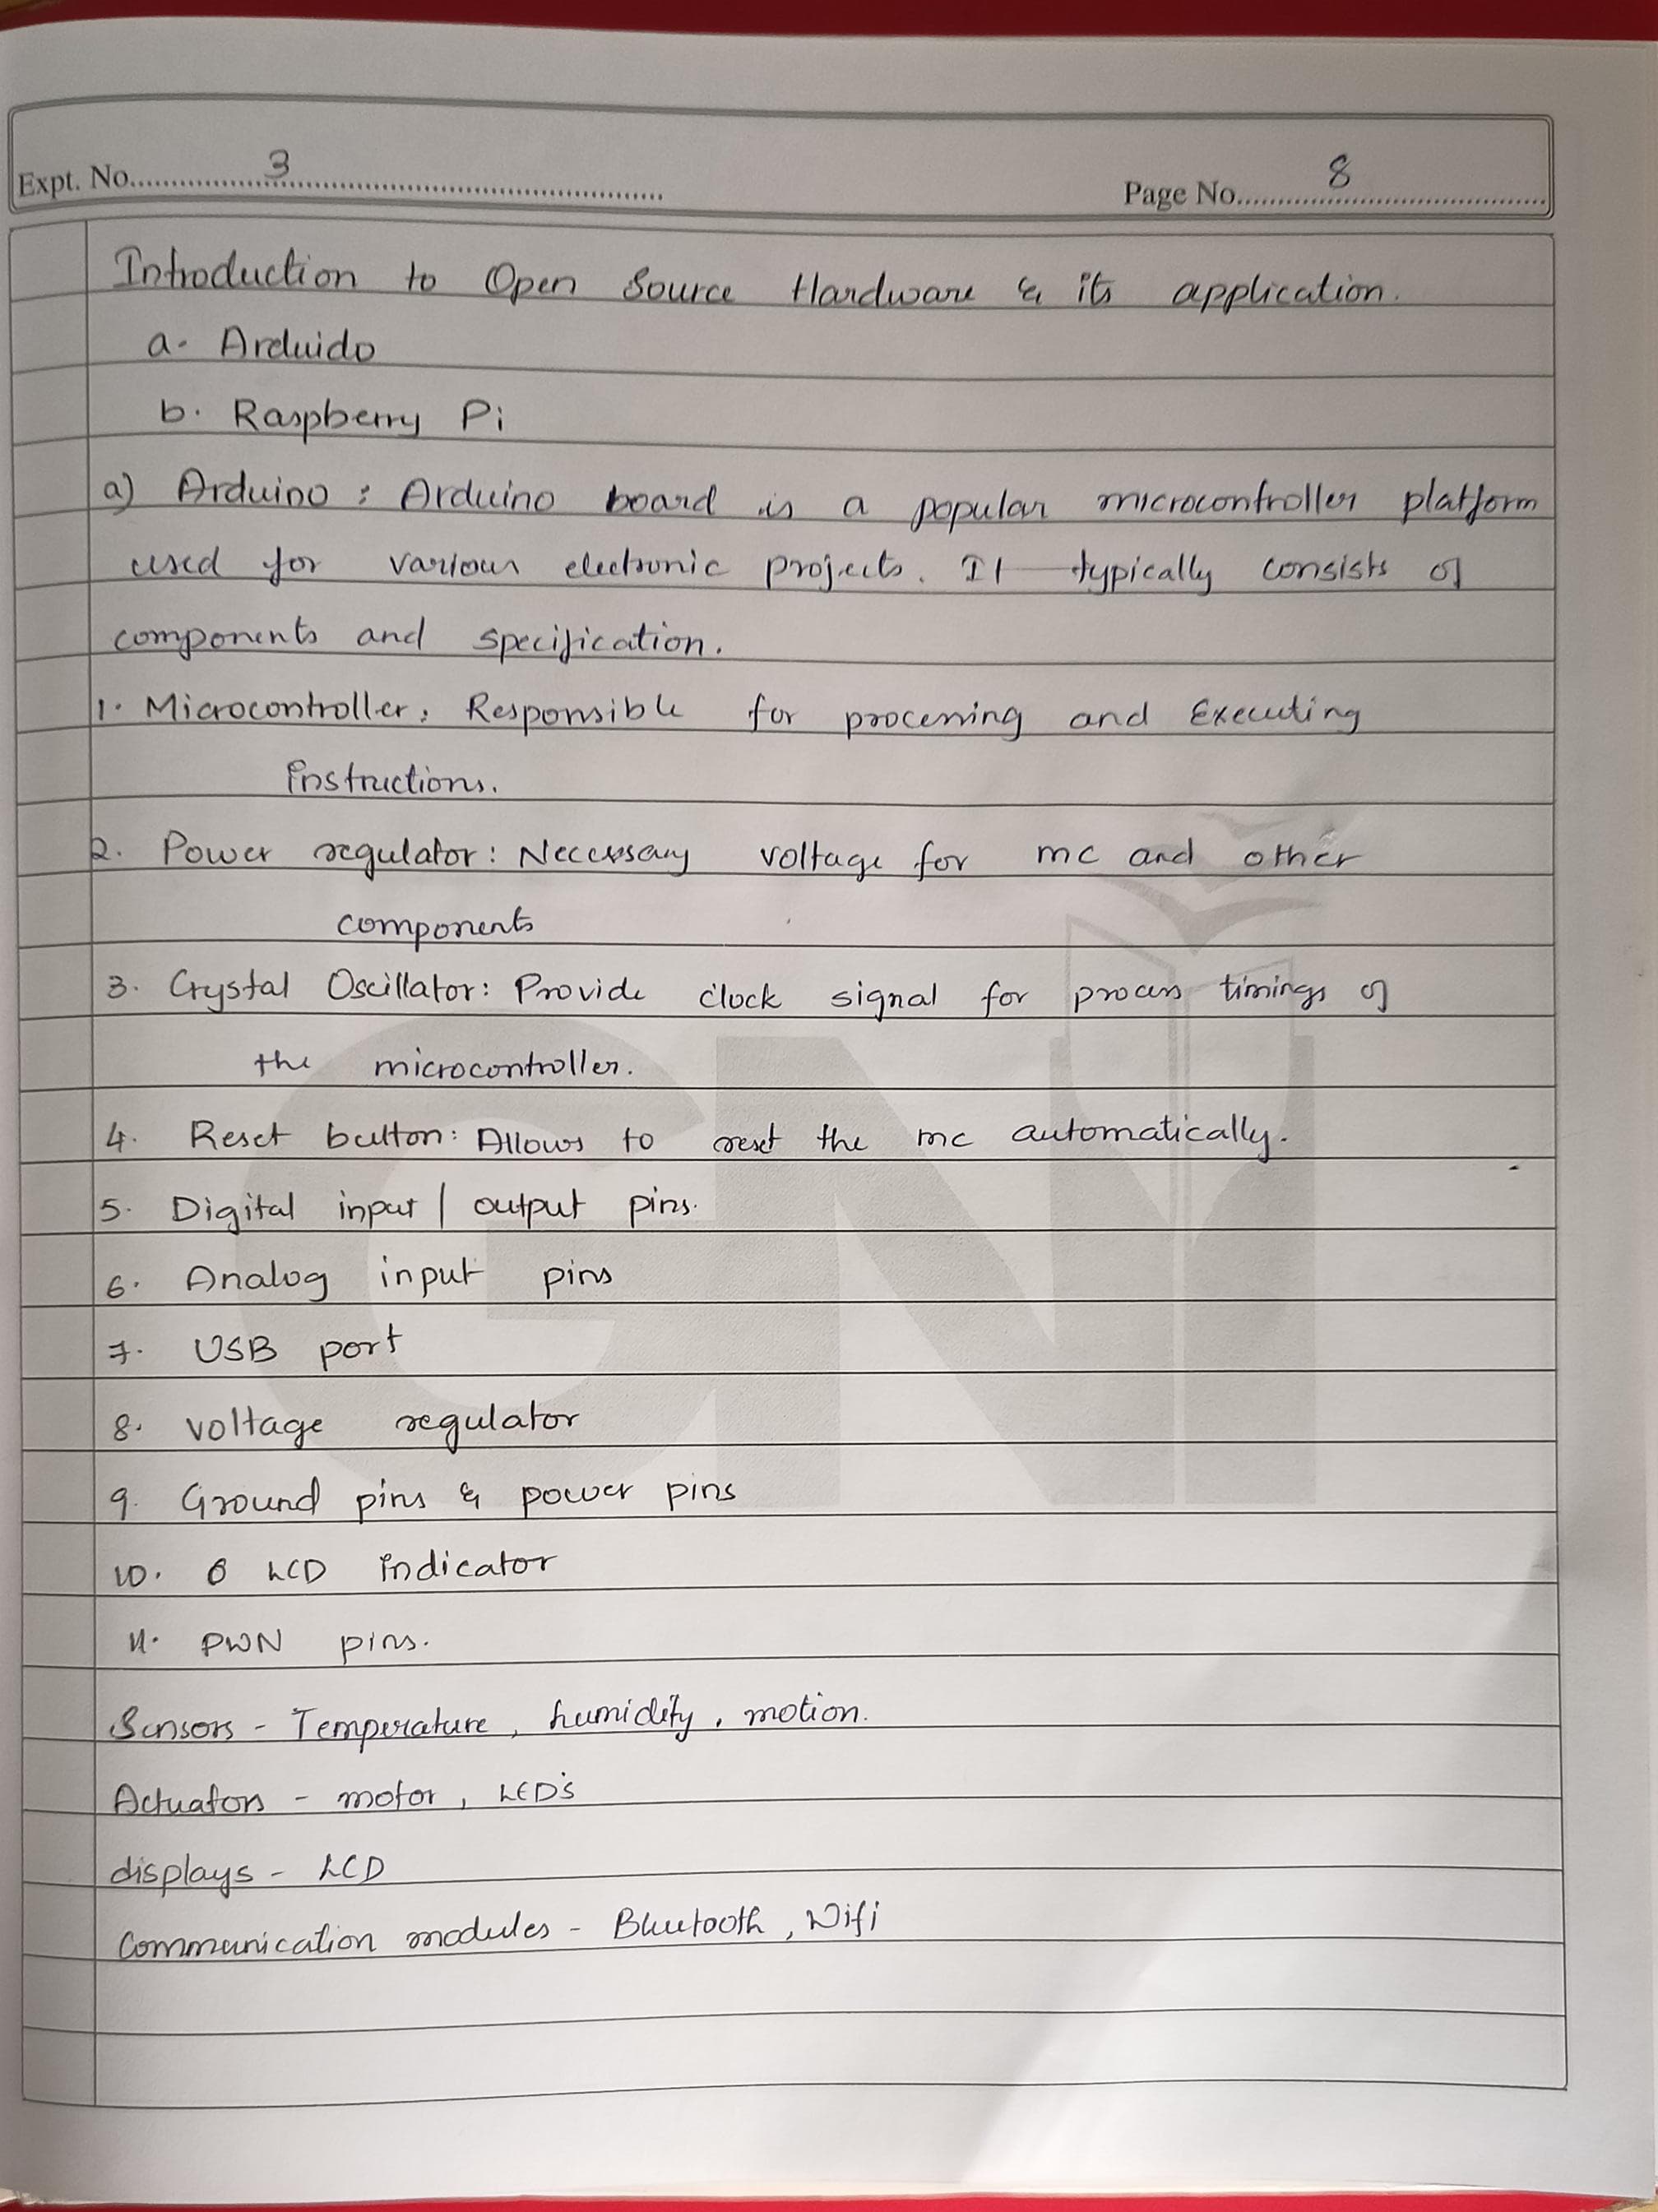 Expt. No. 3 Page No. 8
Introduction to Open Source Hardware & its application.
a. Arduido
b. Raspberry Pi
a) Arduino : Arduino board is a popular microcontroller platform
used for various electronic projects. It typically consists of
components and specification.
1. Microcontroller: Responsible for processing and Executing
instructions.
2. Power regulator: Necessary voltage for mc and other
components
3. Crystal Oscillator: Provide clock signal for process timings of
the microcontroller.
4. Reset button: Allows to reset the mc automatically.
5. Digital input / output pins.
6. Analog input pins
7. USB port
8. voltage regulator
9. Ground pins & power pins
10. LCD indicator
11. PWN pins.
Sensors - Temperature, humidity, motion.
Actuators - motor, LED's
displays - LCD
Communication modules - Bluetooth, Wifi
GNI